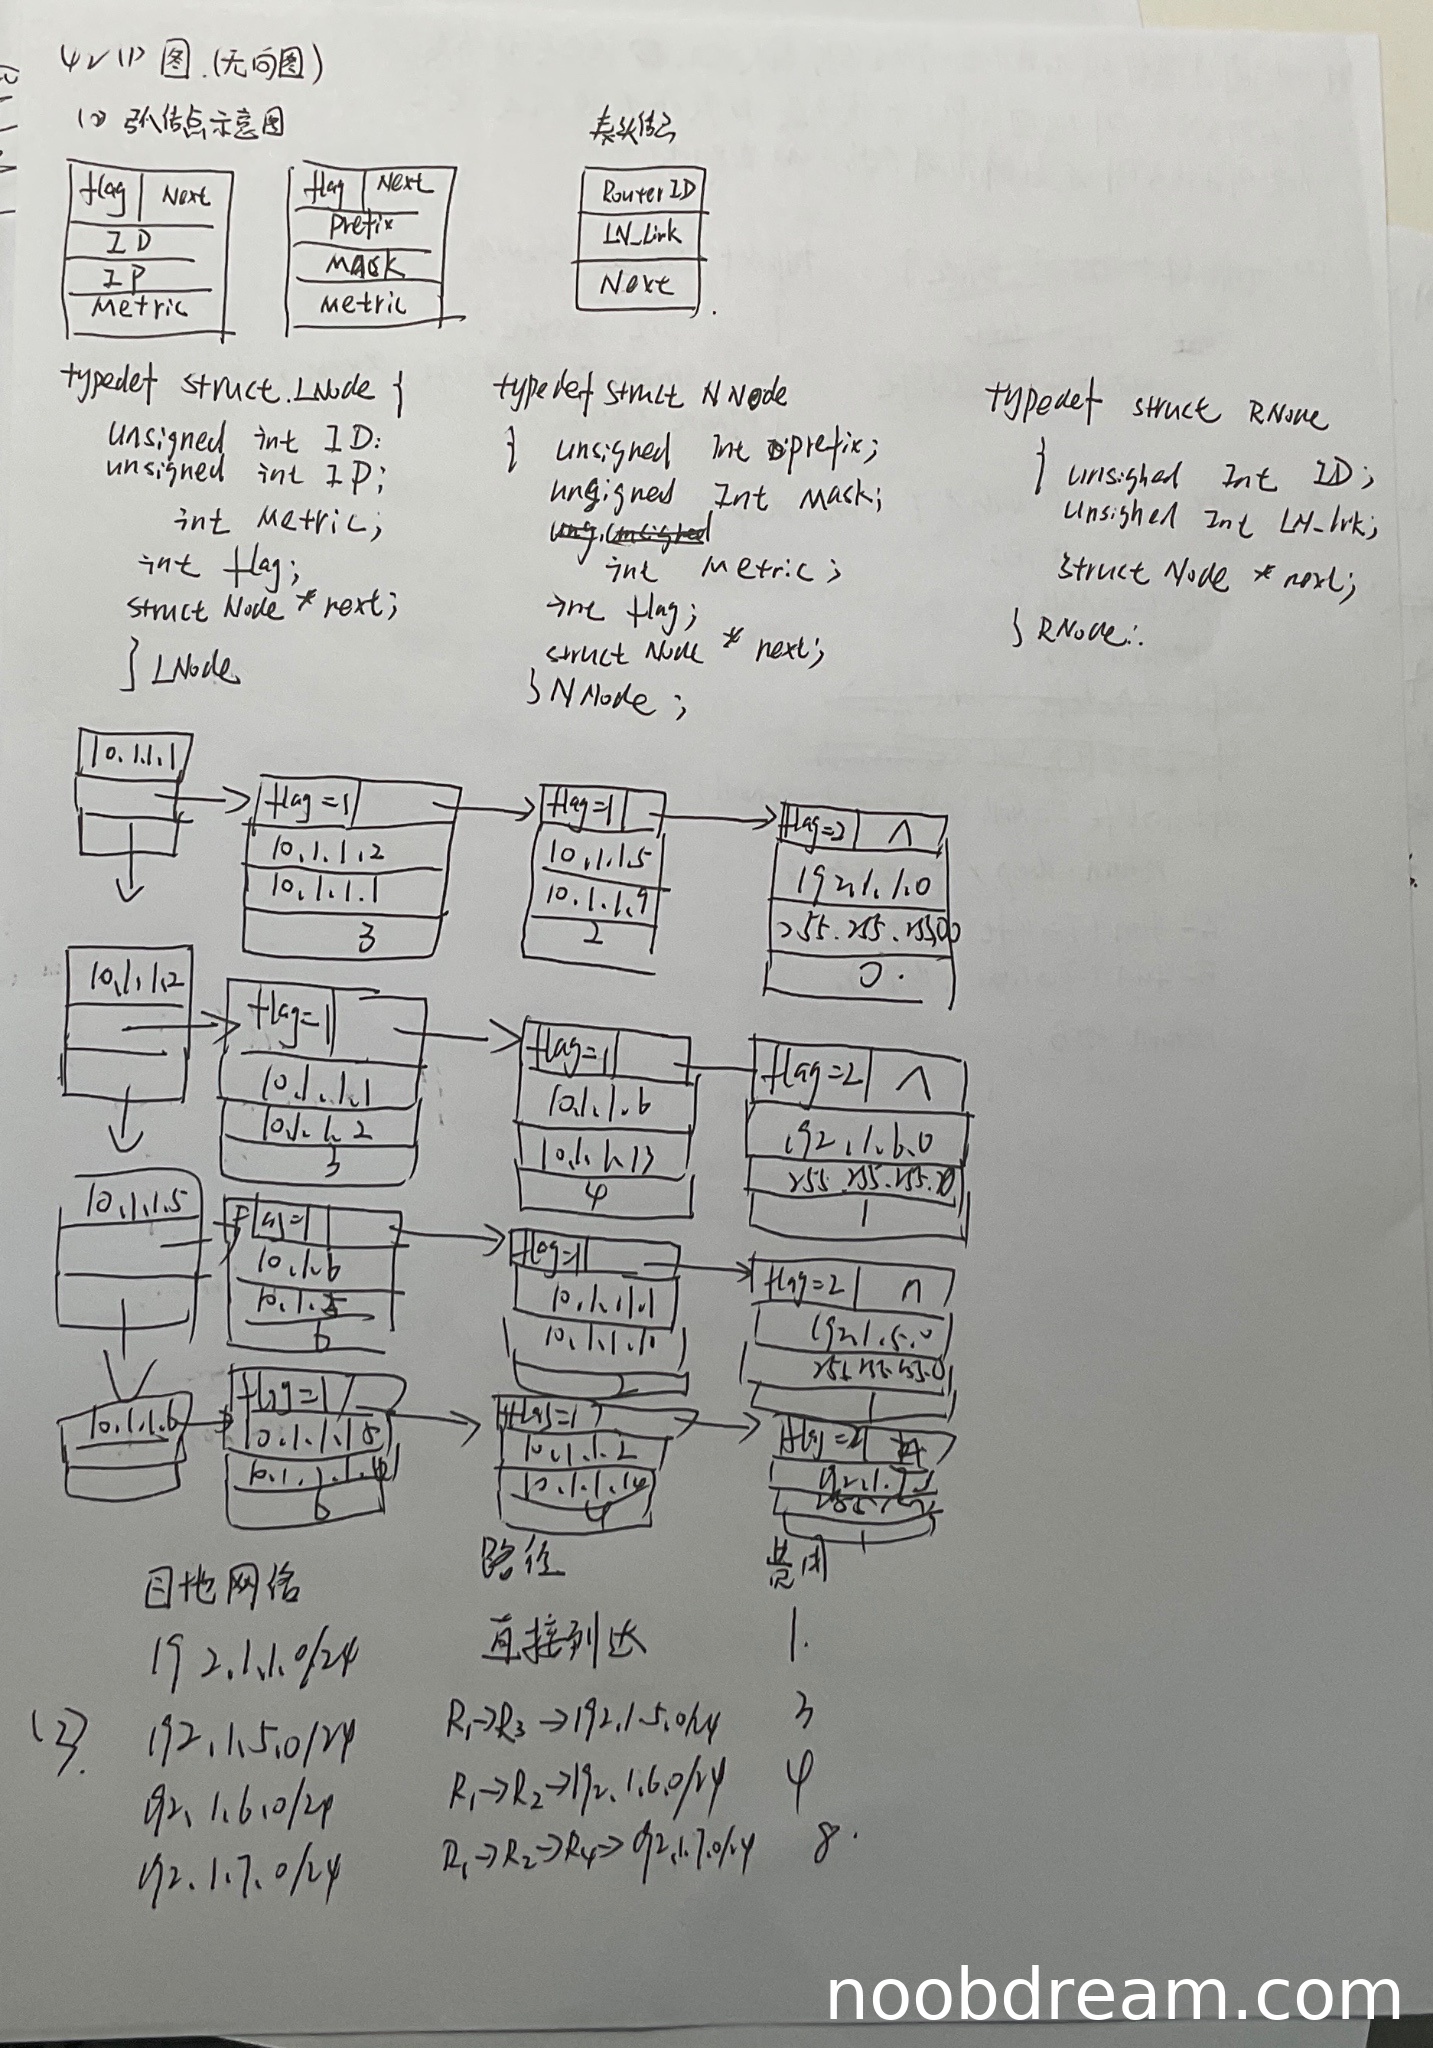 42 (1) 图.(无向图)
(2) 弧结点示意图 表头结点
flag Next flag Next RouterID
ID Prefix LN_link
IP Mask Next
Metric Metric
typedef struct LNode {
unsigned int ID;
unsigned int IP;
int Metric;
int flag;
struct Node * next;
} LNode
typedef struct NNode
{ unsigned Int prefix;
unsigned Int Mask;
int Metric;
int flag;
struct Node * next;
} NNode;
typedef struct RNode
{ unsighed Int ID;
unsighed Int LN_lrk;
struct Node * next;
} RNode;
10.1.1.1
flag=1 flag=1 flag=2 ∧
10.1.1.2 10.1.1.5 192.1.1.0
10.1.1.1 10.1.1.9
3 2 0.
10.1.1.2
flag=1 flag=1 flag=2 ∧
10.1.1.1 10.1.1.6 192.1.6.0
10.1.1.2 10.1.1.13
3 4 1
10.1.1.5
Flag=1 flag=1 flag=2 ∧
10.1.6 10.1.1.1 192.1.5.0
10.1.1.10
6 2 1
10.1.1.6
flag=1 flag=1
10.1.1.2
10.1.1.14
6 4 1
目地网络 路径 费用
192.1.1.0/24 直接到达 1.
(3) 192.1.5.0/24 R1→R3→192.1.5.0/24 3
192.1.6.0/24 R1→R2→192.1.6.0/24 4
192.1.7.0/24 R1→R2→R4→192.1.7.0/24 8.
noobdream.com